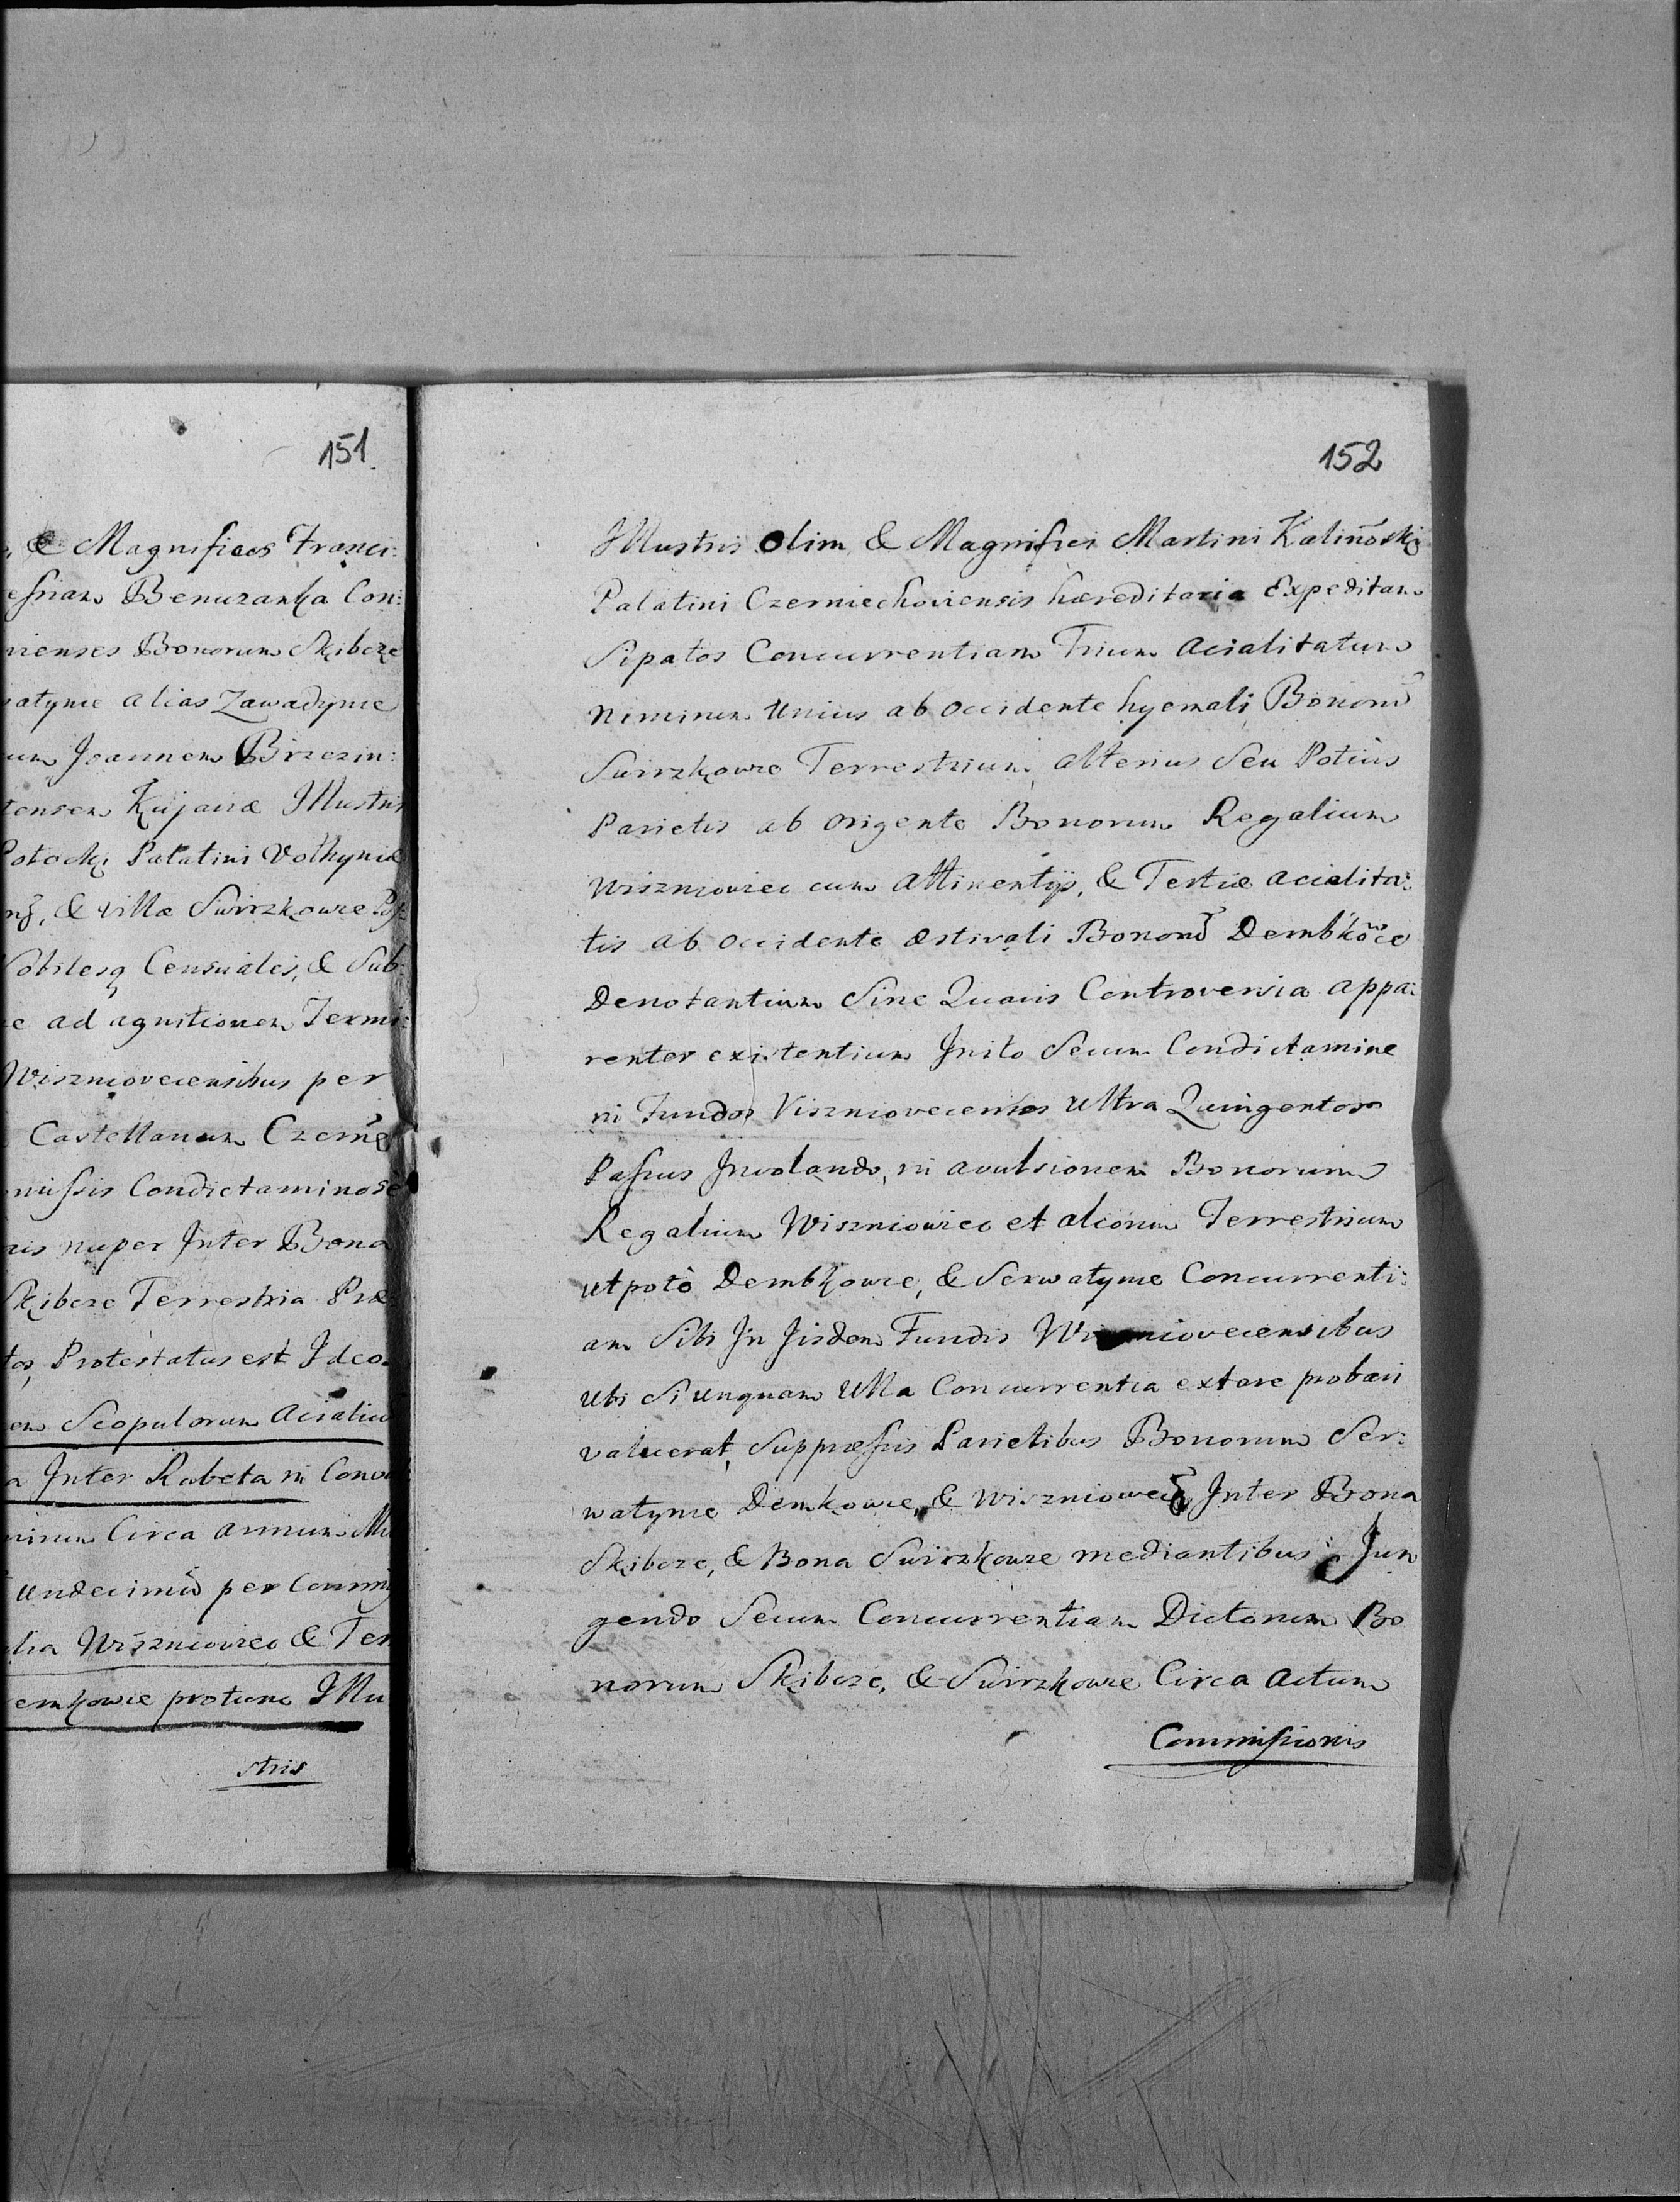 151
& Magnificos Franci:
essian Benuzanka Con:
nienses Bonorum Skibcze
watynie alias Zawadynie
um Joannem Brzezin:
tensem Kujaviæ Illustris
Potocki Palatini Volhyniæ
& villæ Swirzkowce
Nobilesq Censuales, & Sub:
ad agnitionem Termi:
Wiszniovecensibus per
Castellanum Czerne
missis Condictaminose
nuper Inter Bona
Skibcze Terrestria Præ
tos, Protestatus est Ideo
em Scopulorum Acialium
a Inter Rubeta in
Circa annum
undecimum per Commis
alia Wiszniowiec & Ter
emkowce protunc Illu
stris
152
Illustris olim & Magnifici Martini Kalinoski
Palatini Czerniechoviensis hæreditaria Expeditam
Sipatos Concurrentiam Trium Acialitatum
Niminum Unius ab occidente hyemali Bonorum
Swirzkowce Terrestrium, alterius Seu Potius
Parietis ab origente Bonorum Regalium
Wiszniowiec cum Attinentijs, & Tertiæ acialita:
tis ab occidente æstivali Bonorum Dembkowce
Denotantium Sine Quavis Controversia appa:
renter existentium Inito Secum Condictamine
in Fundos Viszniovecenses Ultra Quingentos
Passus Involando, in avulsionem Bonorum
Regalium Wiszniowiec et aliorum Terrestrium
utpote Dembkowce, & Serwatynie Concurrenti:
am Sibi In Iisdem Fundis Wiszniovecensibus
Ubi Si unquam Ulla Concurrentia extare probari
valuerat, Suppressis Parietibus Bonorum Ser:
watynie Demkowce, & Wiszniowiec Inter Bona
Skibcze, & Bona Swirzkowce mediantibus Jun
gendo Secum Concurrentiam Dictorum Bo
norum Skibcze, & Swirzkowce Circa Actum
Commissionis